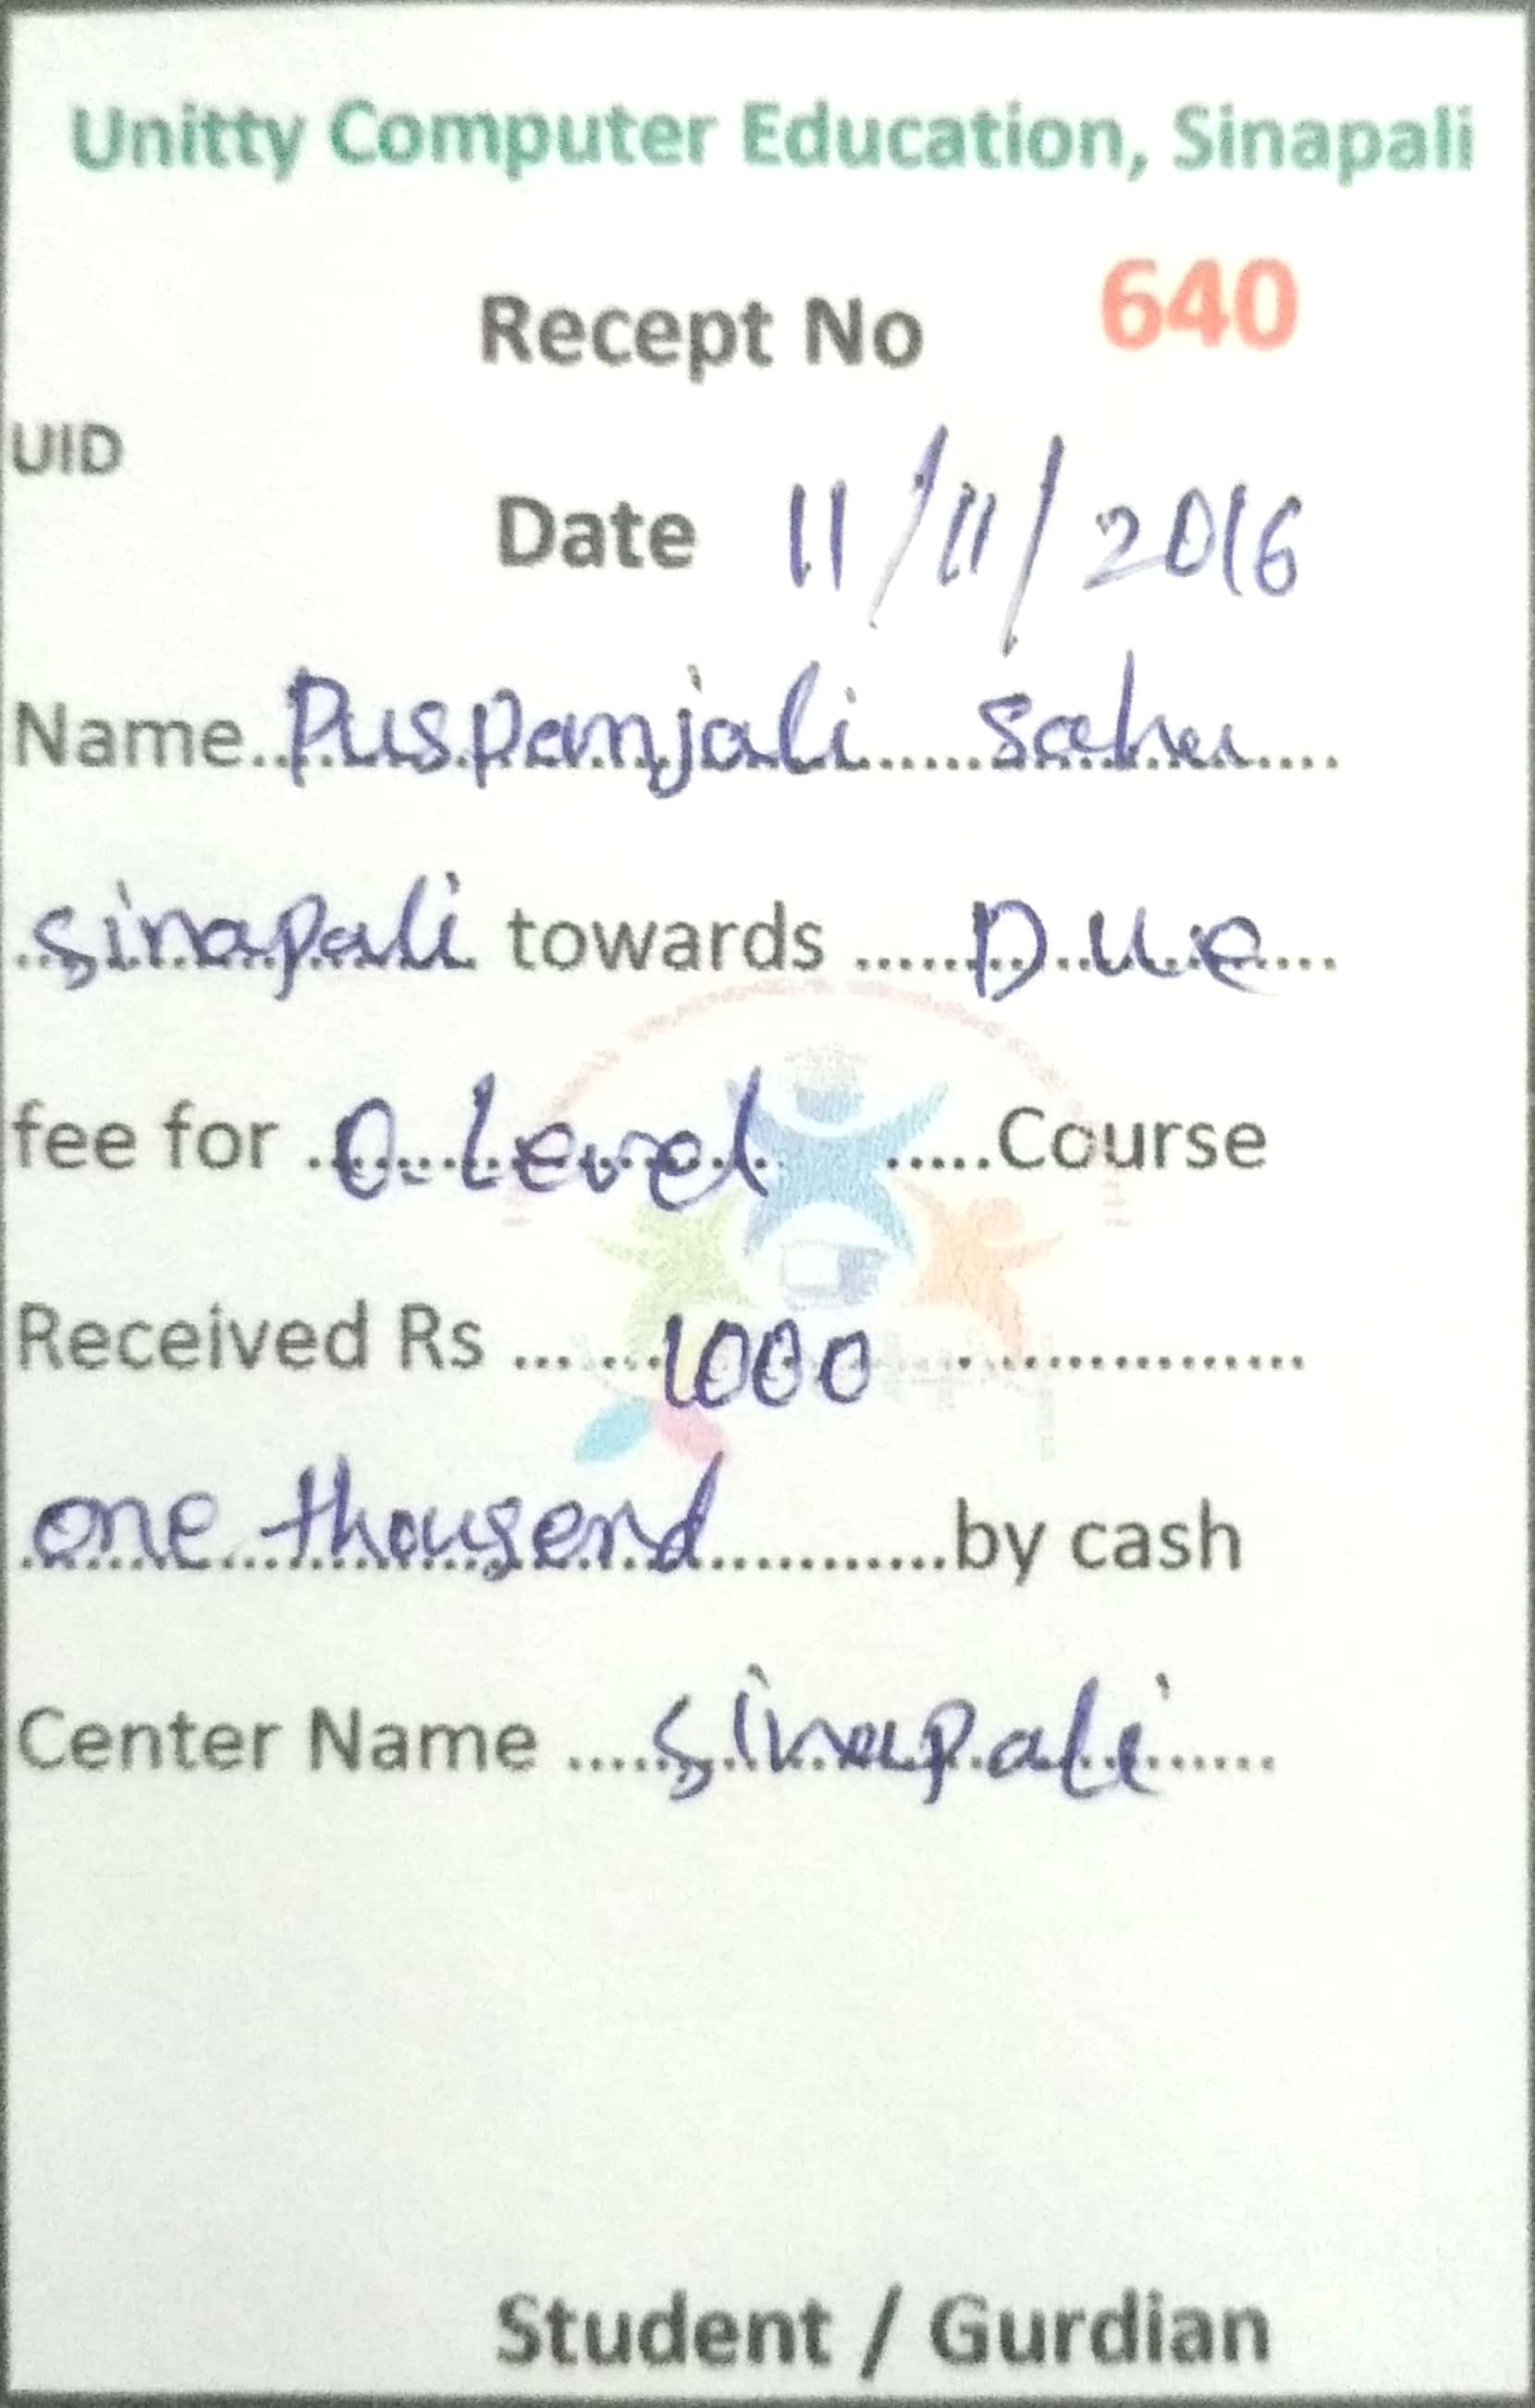 Unitty Computer Education, Sinapali
Recept No 640
UID
Date 11/11/2016
Name Puspanjali Sahu
Sinapali towards Due
fee for O.Level Course
Received Rs 1000
one thousend by cash
Center Name Sinapali
Student / Gurdian